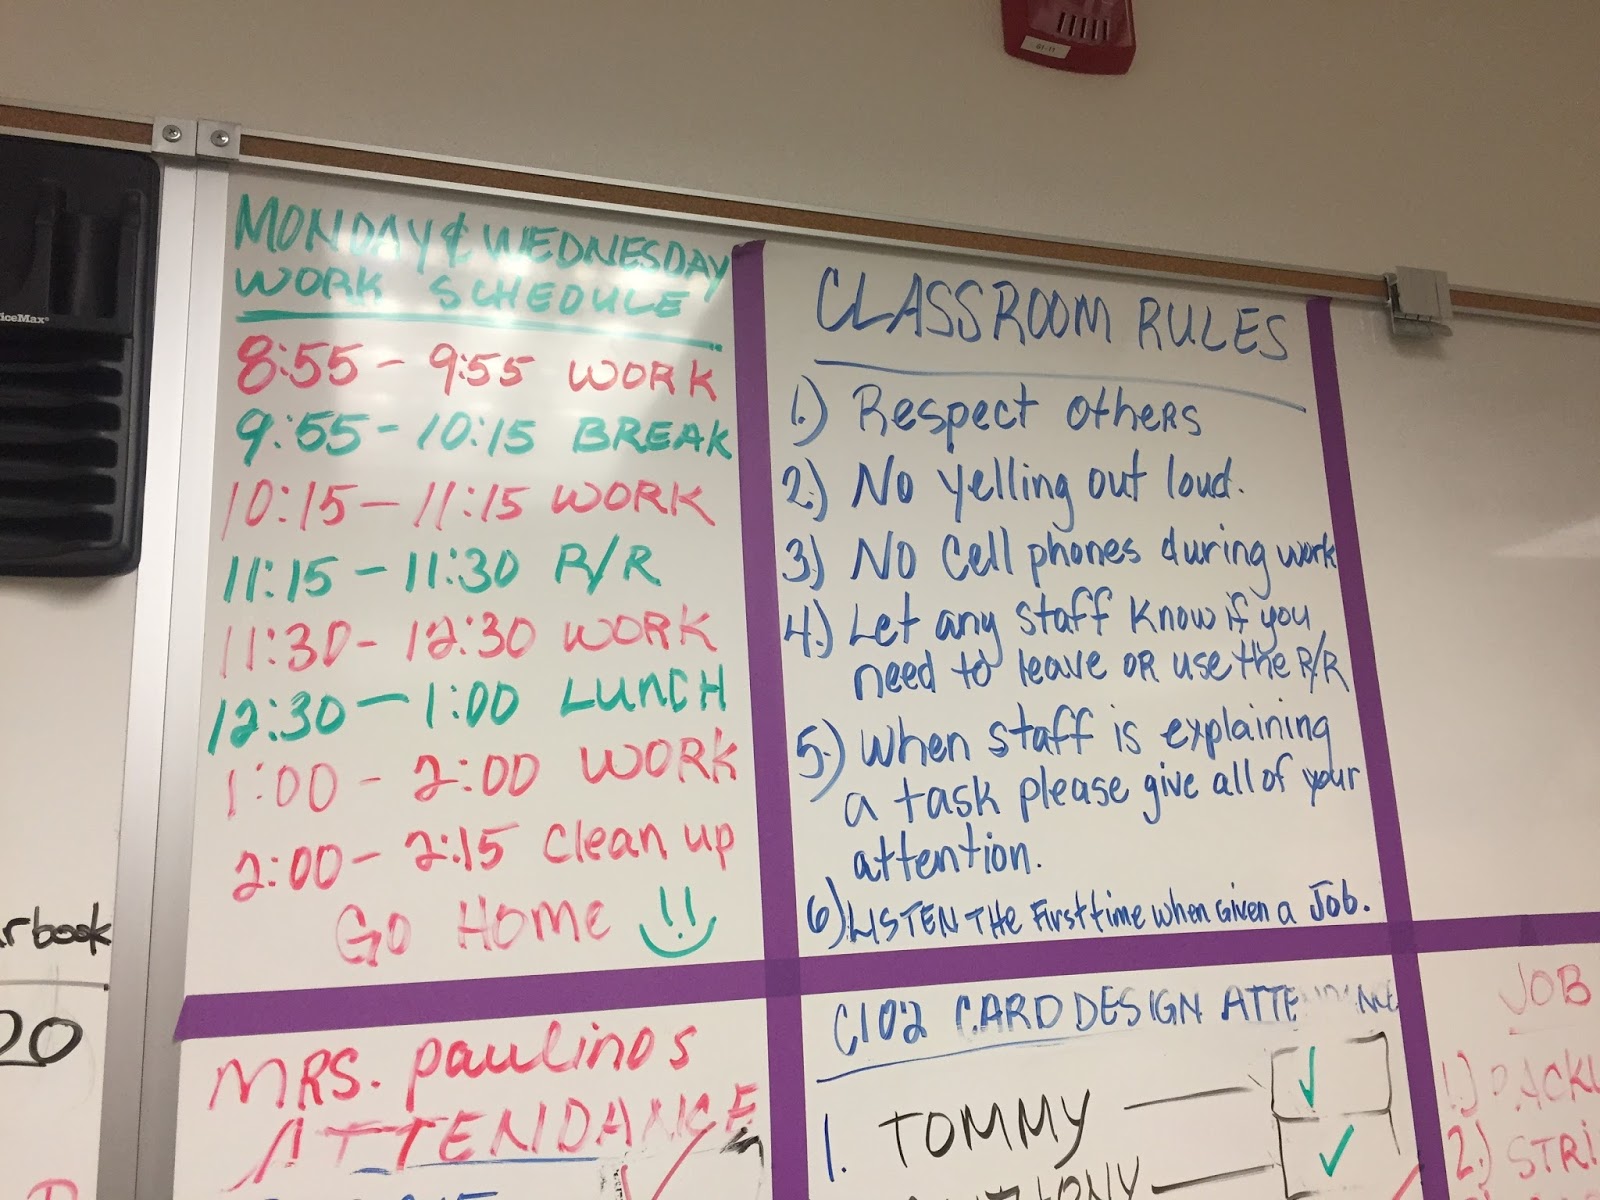 MONDAY & WEDNESDAY
WORK SCHEDULE
8:55 - 9:55 WORK
9:55 - 10:15 BREAK
10:15 - 11:15 WORK
11:15 - 11:30 R/R
11:30 - 12:30 WORK
12:30 - 1:00 LUNCH
1:00 - 2:00 WORK
2:00 - 2:15 Clean up
GO HOME
CLASSROOM RULES
1.) Respect others
2.) No yelling out loud.
3.) No Cell phones during work
4.) Let any staff know if you
need to leave or use the R/R
5.) When staff is explaining
a task please give all of your
attention.
6.) LISTEN THE First time when Given a Job.
MRS. paulinos
ATTENDANCE
C102 CARD DESIGN ATTENDANCE
1. TOMMY
JOB
1.)
2.)
rbook
iceMax